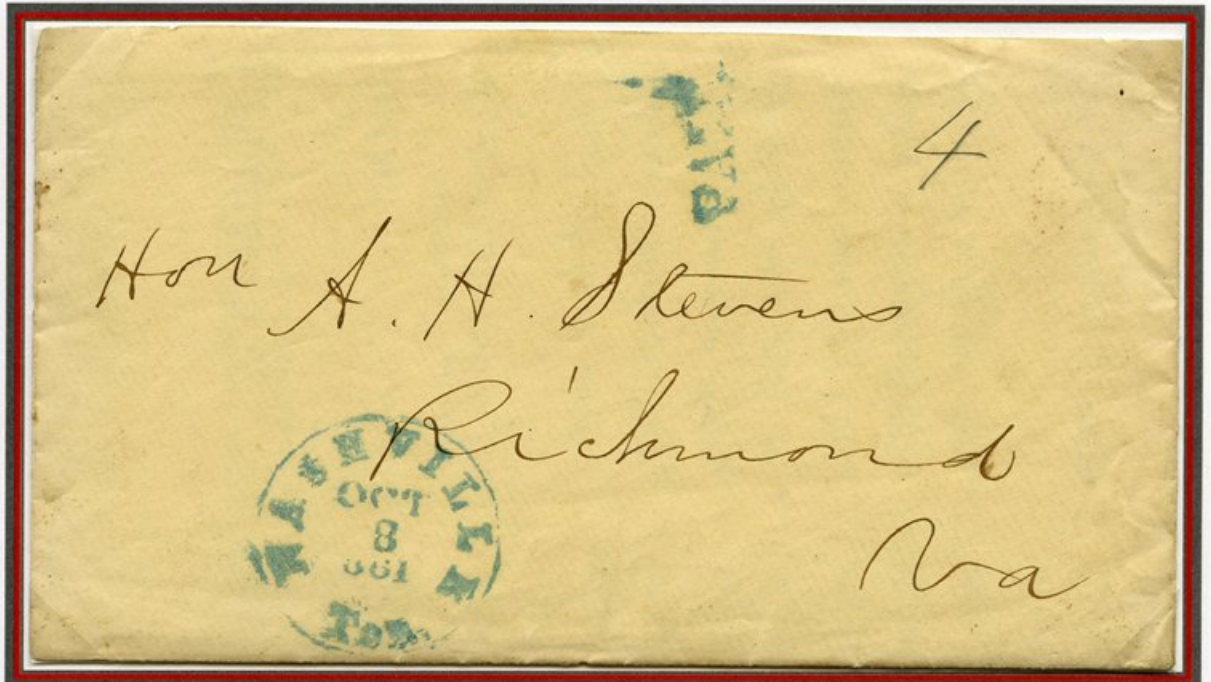 PAID
4
Hon A. H. Stevens
Richmond
Va
NASHVILLE
OCT
8
1861
Ten.